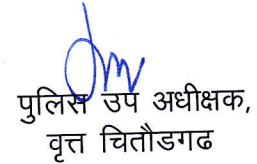 पुलिस उप अधीक्षक,
वृत्त चितौडगढ